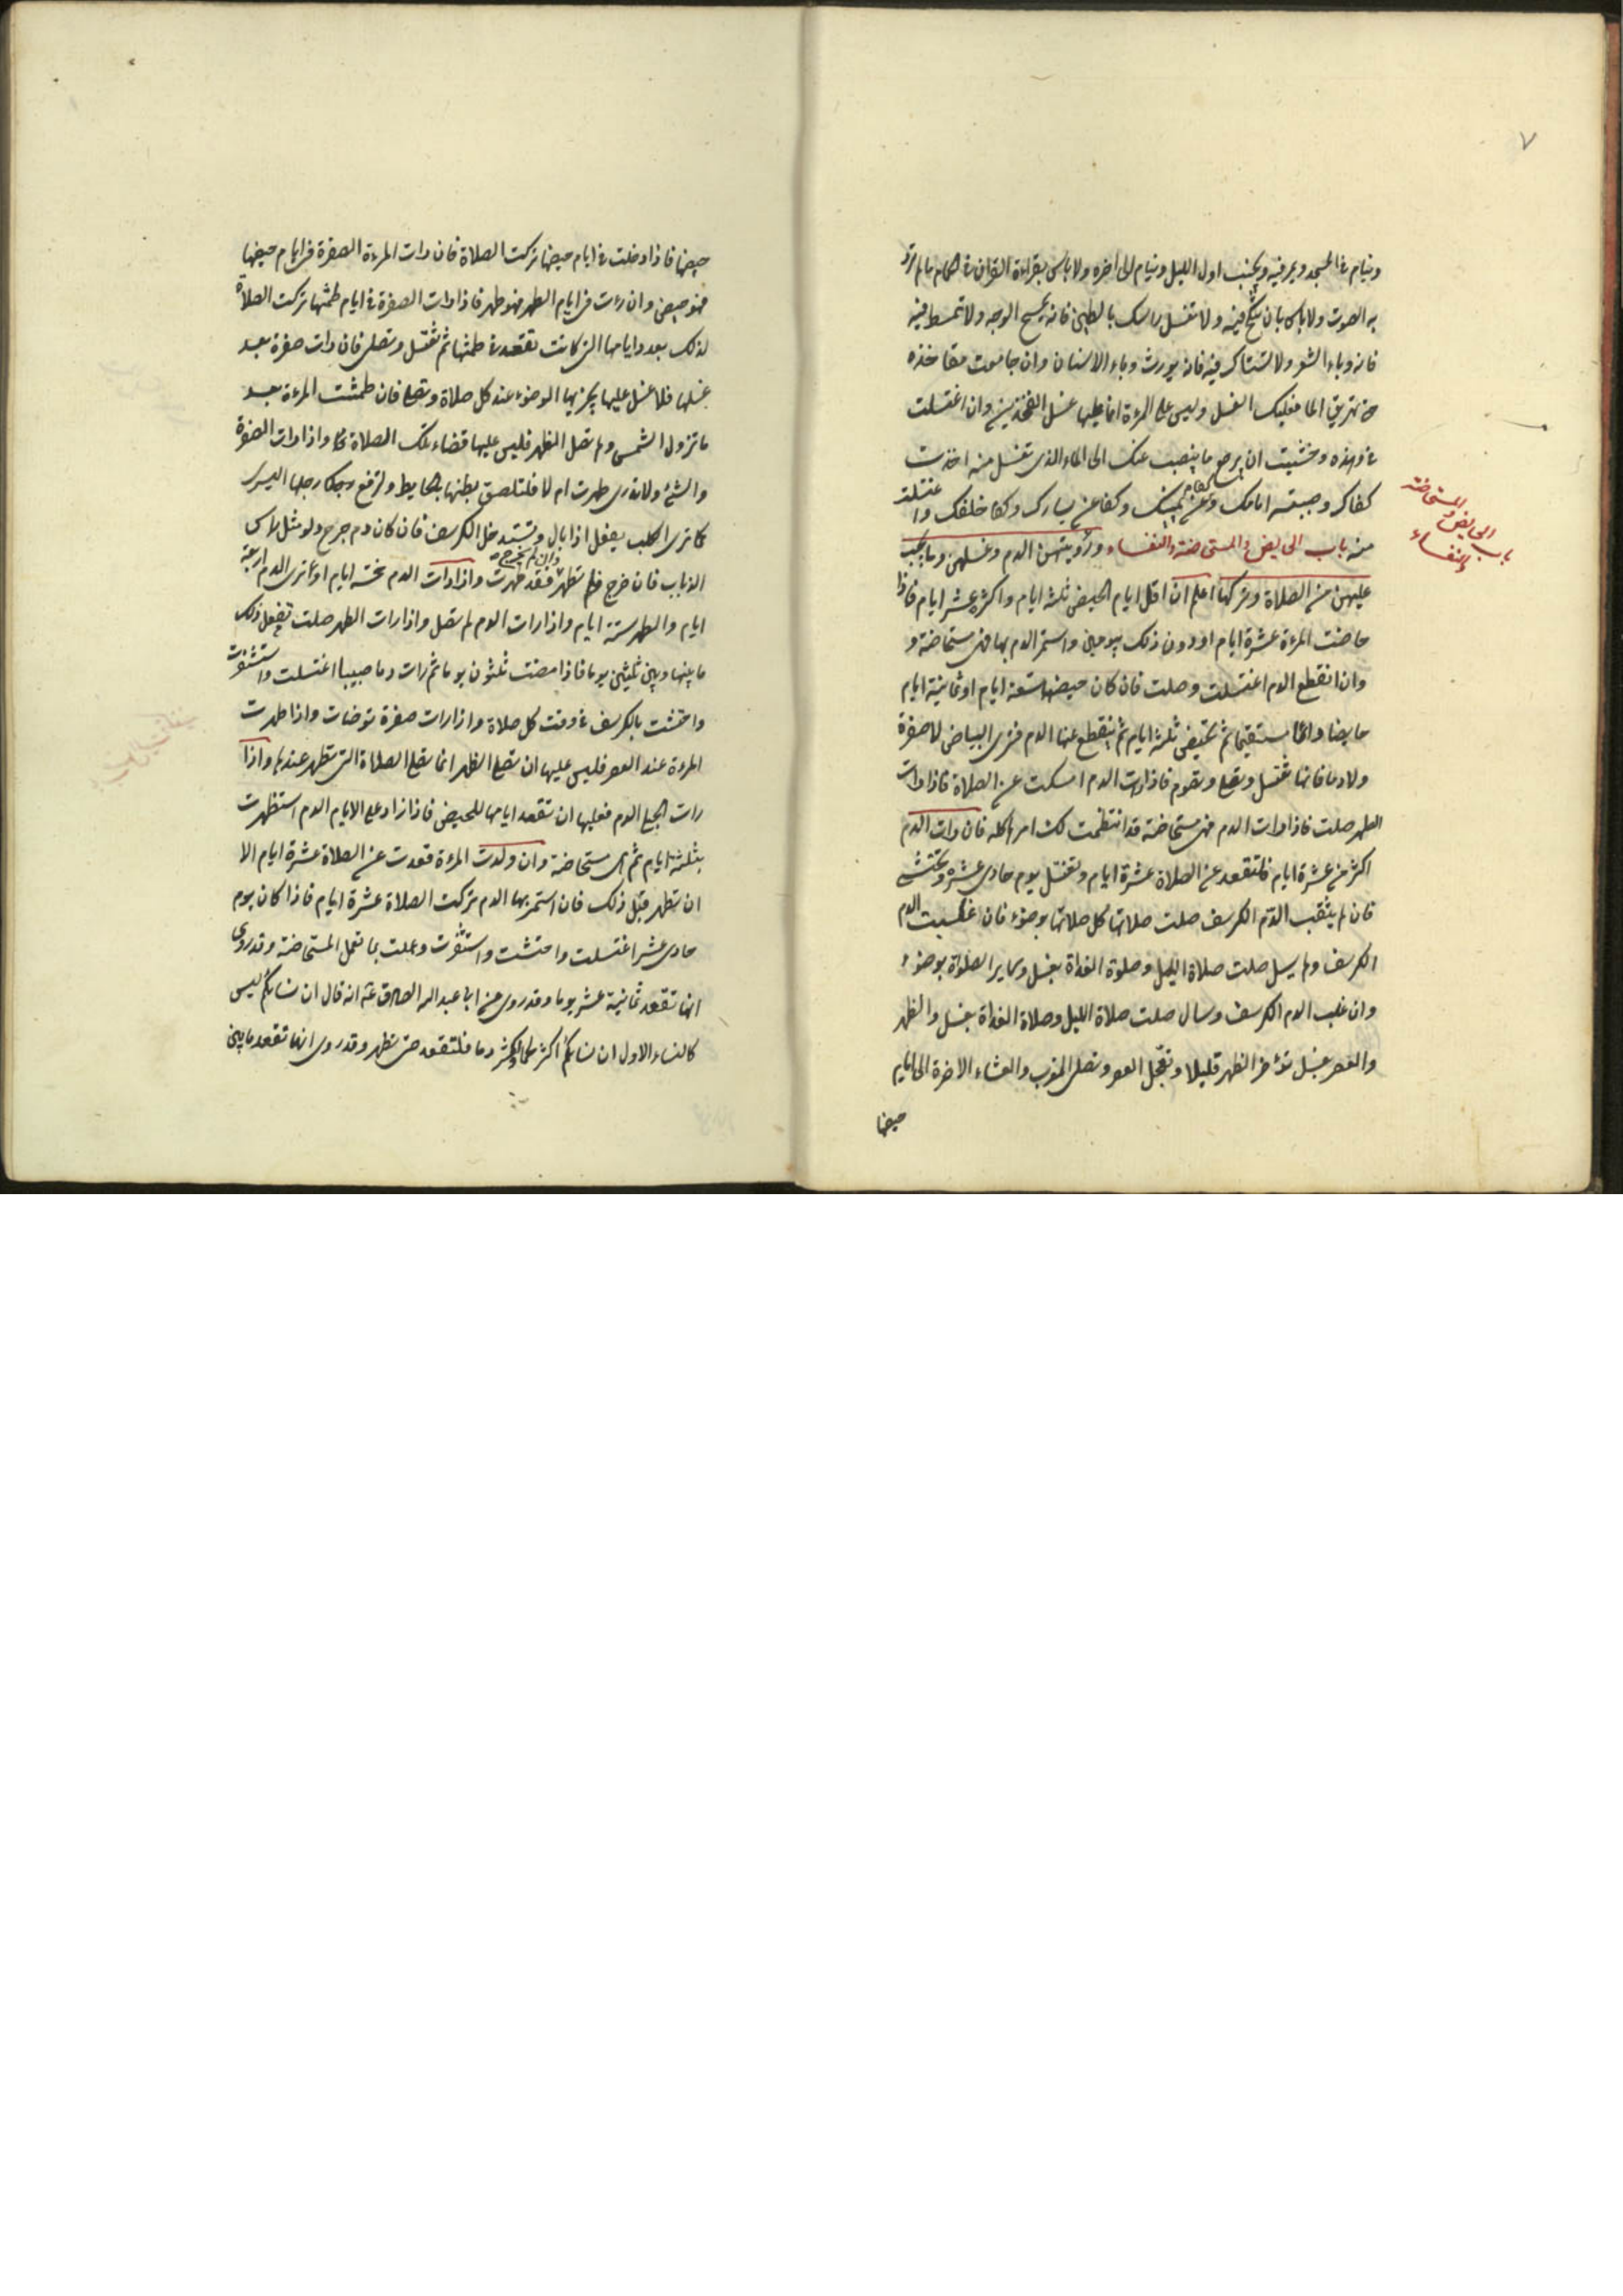 ٧
وينام في المسجد ويمر فيه ويجنب اول الليل وينام الى اخره ولا باس بقراءة القران في الحمام ما لم ترد
به الصوت ولا باس بان ينكح فيه ولا تغسل راسك بالطين فانه يسمج الوجه ولا تمشط فيه
فانه وباء الشعر ولا تستاك فيه فانه يورث وباء الاسنان وان جامعت مفاخذه
حتى تهريق الماء فعليك الغسل وليس على المرءة انما عليها غسل الفخذين وان اغتسلت
في وهذه وخشيت ان يرجع ما ينصب عنك الى الماء الذي تغتسل منه اخذت
كفا وصببته امامك وكفا عن يمينك وكفا عن يسارك وكفا خلفك واغتسلت
منه باب الحايض والمستحاضة والنفساء ورؤيتهن الدم وغسلهن وما يجب
باب الحايض والمستحاضة والنفساء
عليهن من الصلاة وتركها اعلم ان اقل ايام الحيض ثلثة ايام واكثره عشر ايام فاذا
حاضت المرءة عشرة ايام او دون ذلك بيومين واستمر الدم بها فهي مستحاضة و
وان انقطع الدم اغتسلت وصلت فان كان حيضها تسعة ايام او ثمانية ايام
حايضا دائما مستقيما ثم تحيض ثلثة ايام ثم ينقطع عنها الدم فترى البياض لا صفرة
ولا دما فانها تغتسل وتصلي وتصوم فاذا رات الدم امسكت عن الصلاة فاذا رات
الطهر صلت فاذا رات الدم فهي مستحاضة قد انتظمت لك امرها كله فان رات الدم
اكثر من عشرة ايام فلتقعد عن الصلاة عشرة ايام وتغتسل يوم حادي عشر وتحتشي
فان لم يثقب الدم الكرسف صلت صلاتها كل صلاتها بوضوء فان غلبت الدم
الكرسف ولم يسل صلت صلاة الليل وصلوة الغداة بغسل وساير الصلوة بوضوء
وان غلب الدم الكرسف وسال صلت صلاة الليل وصلاة الغداة بغسل والظهر
والعصر بغسل تؤخر الظهر قليلا وتعجل العصر وتصلي المغرب والعشاء الاخرة الى ايام
حيضها
حيضها فاذا دخلت في ايام حيضها تركت الصلاة فان رات المرءة الصفرة في ايام حيضها
فهو حيض وان رءت في ايام الطهر فهو طهر فاذا رات الصفرة في ايام طمثها تركت الصلاة
لذلك بعدد ايامها التي كانت تقعد في طمثها ثم تغتسل وتصلي فان رات صفرة بعد
غسلها فلا غسل عليها يجزيها الوضوء عند كل صلاة وتصلي فان طمثت المرءة بعد
ما تزول الشمس ولم تصل الظهر فليس عليها قضاء تلك الصلاة واذا رات الصفرة
والشئ ولا تدري طهرت ام لا فلتلصق بطنها بالحايط ولترفع رجلها اليسرى
كما ترى الكلب يفعل اذا بال وتستدخل الكرسف فان كان دم خرج ولو مثل راس
الذباب فان خرج فلم تطهر وان لم يخرج فقد طهرت واذا رات الدم خمسة ايام او ترى الدم اربعة
ايام والطهر ستة ايام واذا رات الدم لم تصل واذا رات الطهر صلت تفعل ذلك
ما بينها وبين ثلثين يوما فاذا مضت ثلثون يوما ثم رات دما صبيبا اغتسلت واستثفرت
واحتشت بالكرسف في وقت كل صلاة واذا رات صفرة توضات واذا طهرت
المرءة عند العصر فليس عليها ان تصلي الظهر انما تصلي الصلاة التي تطهر عندها واذا
رات الدم فعليها ان تقعد ايامها للحيض فاذا زاد على الايام الدم استظهرت
بثلثة ايام ثم هي مستحاضة وان ولدت المرءة قعدت عن الصلاة عشرة ايام الا
ان تطهر قبل ذلك فان استمر بها الدم تركت الصلاة عشرة ايام فاذا كان يوم
حادي عشر اغتسلت واحتشت واستثفرت وعملت بما تعمل المستحاضة وقد روي
انها تقعد ثمانية عشر يوما وقد روي عن ابي عبد الله الصادق انه قال ان نسائكم ليس
كالنساء الاول ان نسائكم اكثر لحما واكثر دما فلتقعد حتى تطهر وقد روي انها تقعد ما بين